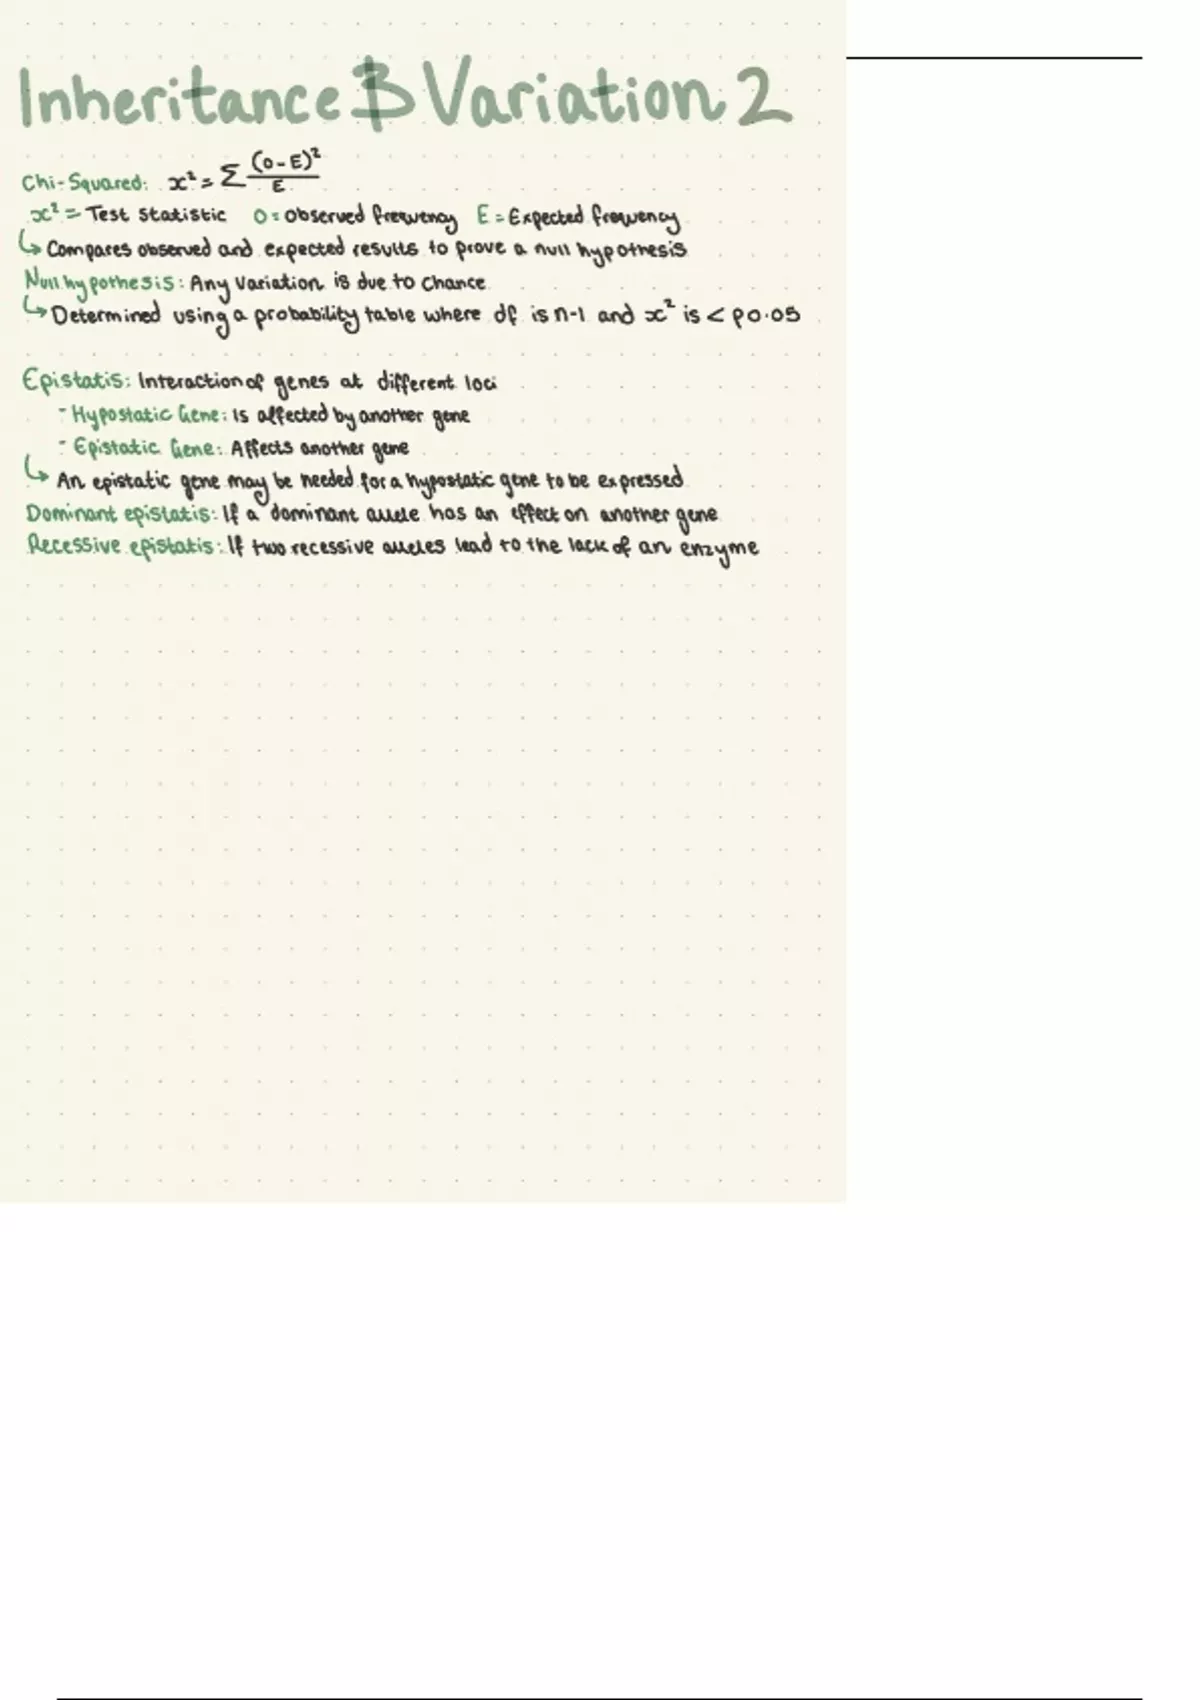 Inheritance & Variation 2
Chi-Squared: x² = Σ (O-E)² / E
x² = Test Statistic O = Observed frequency E = Expected frequency
↳ Compares observed and expected results to prove a null hypothesis
Null hypothesis: Any variation is due to chance
↳ Determined using a probability table where df is n-1 and x² is < p0.05
Epistatis: Interaction of genes at different loci
- Hypostatic Gene: Is affected by another gene
- Epistatic Gene: Affects another gene
↳ An epistatic gene may be needed for a hypostatic gene to be expressed
Dominant epistatis: If a dominant allele has an effect on another gene
Recessive epistatis: If two recessive alleles lead to the lack of an enzyme